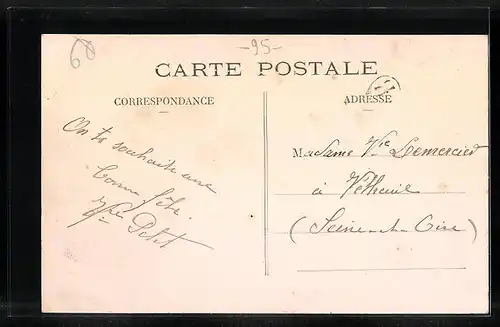 60
-95-
CARTE POSTALE
CORRESPONDANCE
ADRESSE
On te souhaite une
bonne fête.
Petit
Madame Vve Lemercier
à Vétheuil
(Seine-et-Oise)